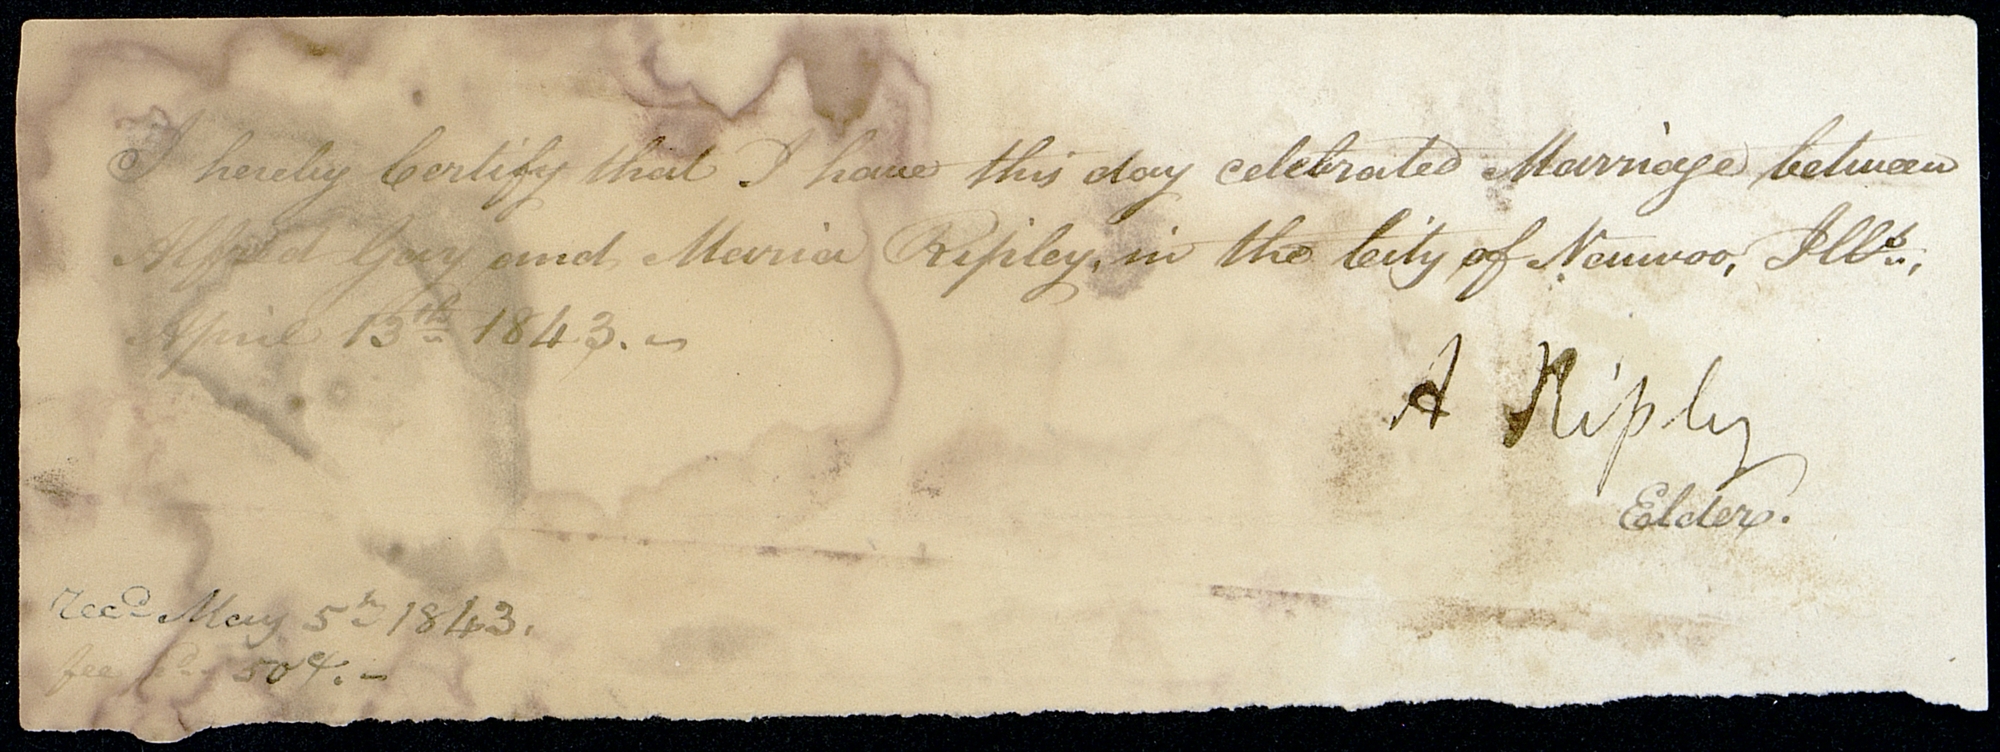 I hereby Certify that I have this day celebrated Marriage between
Alfred Gay and Maria Ripley, in the City of Nauvoo, Ills.,
April 13th 1843. —
A Ripley
Elder.
Recd May 5th 1843.
fee pd 50¢. —